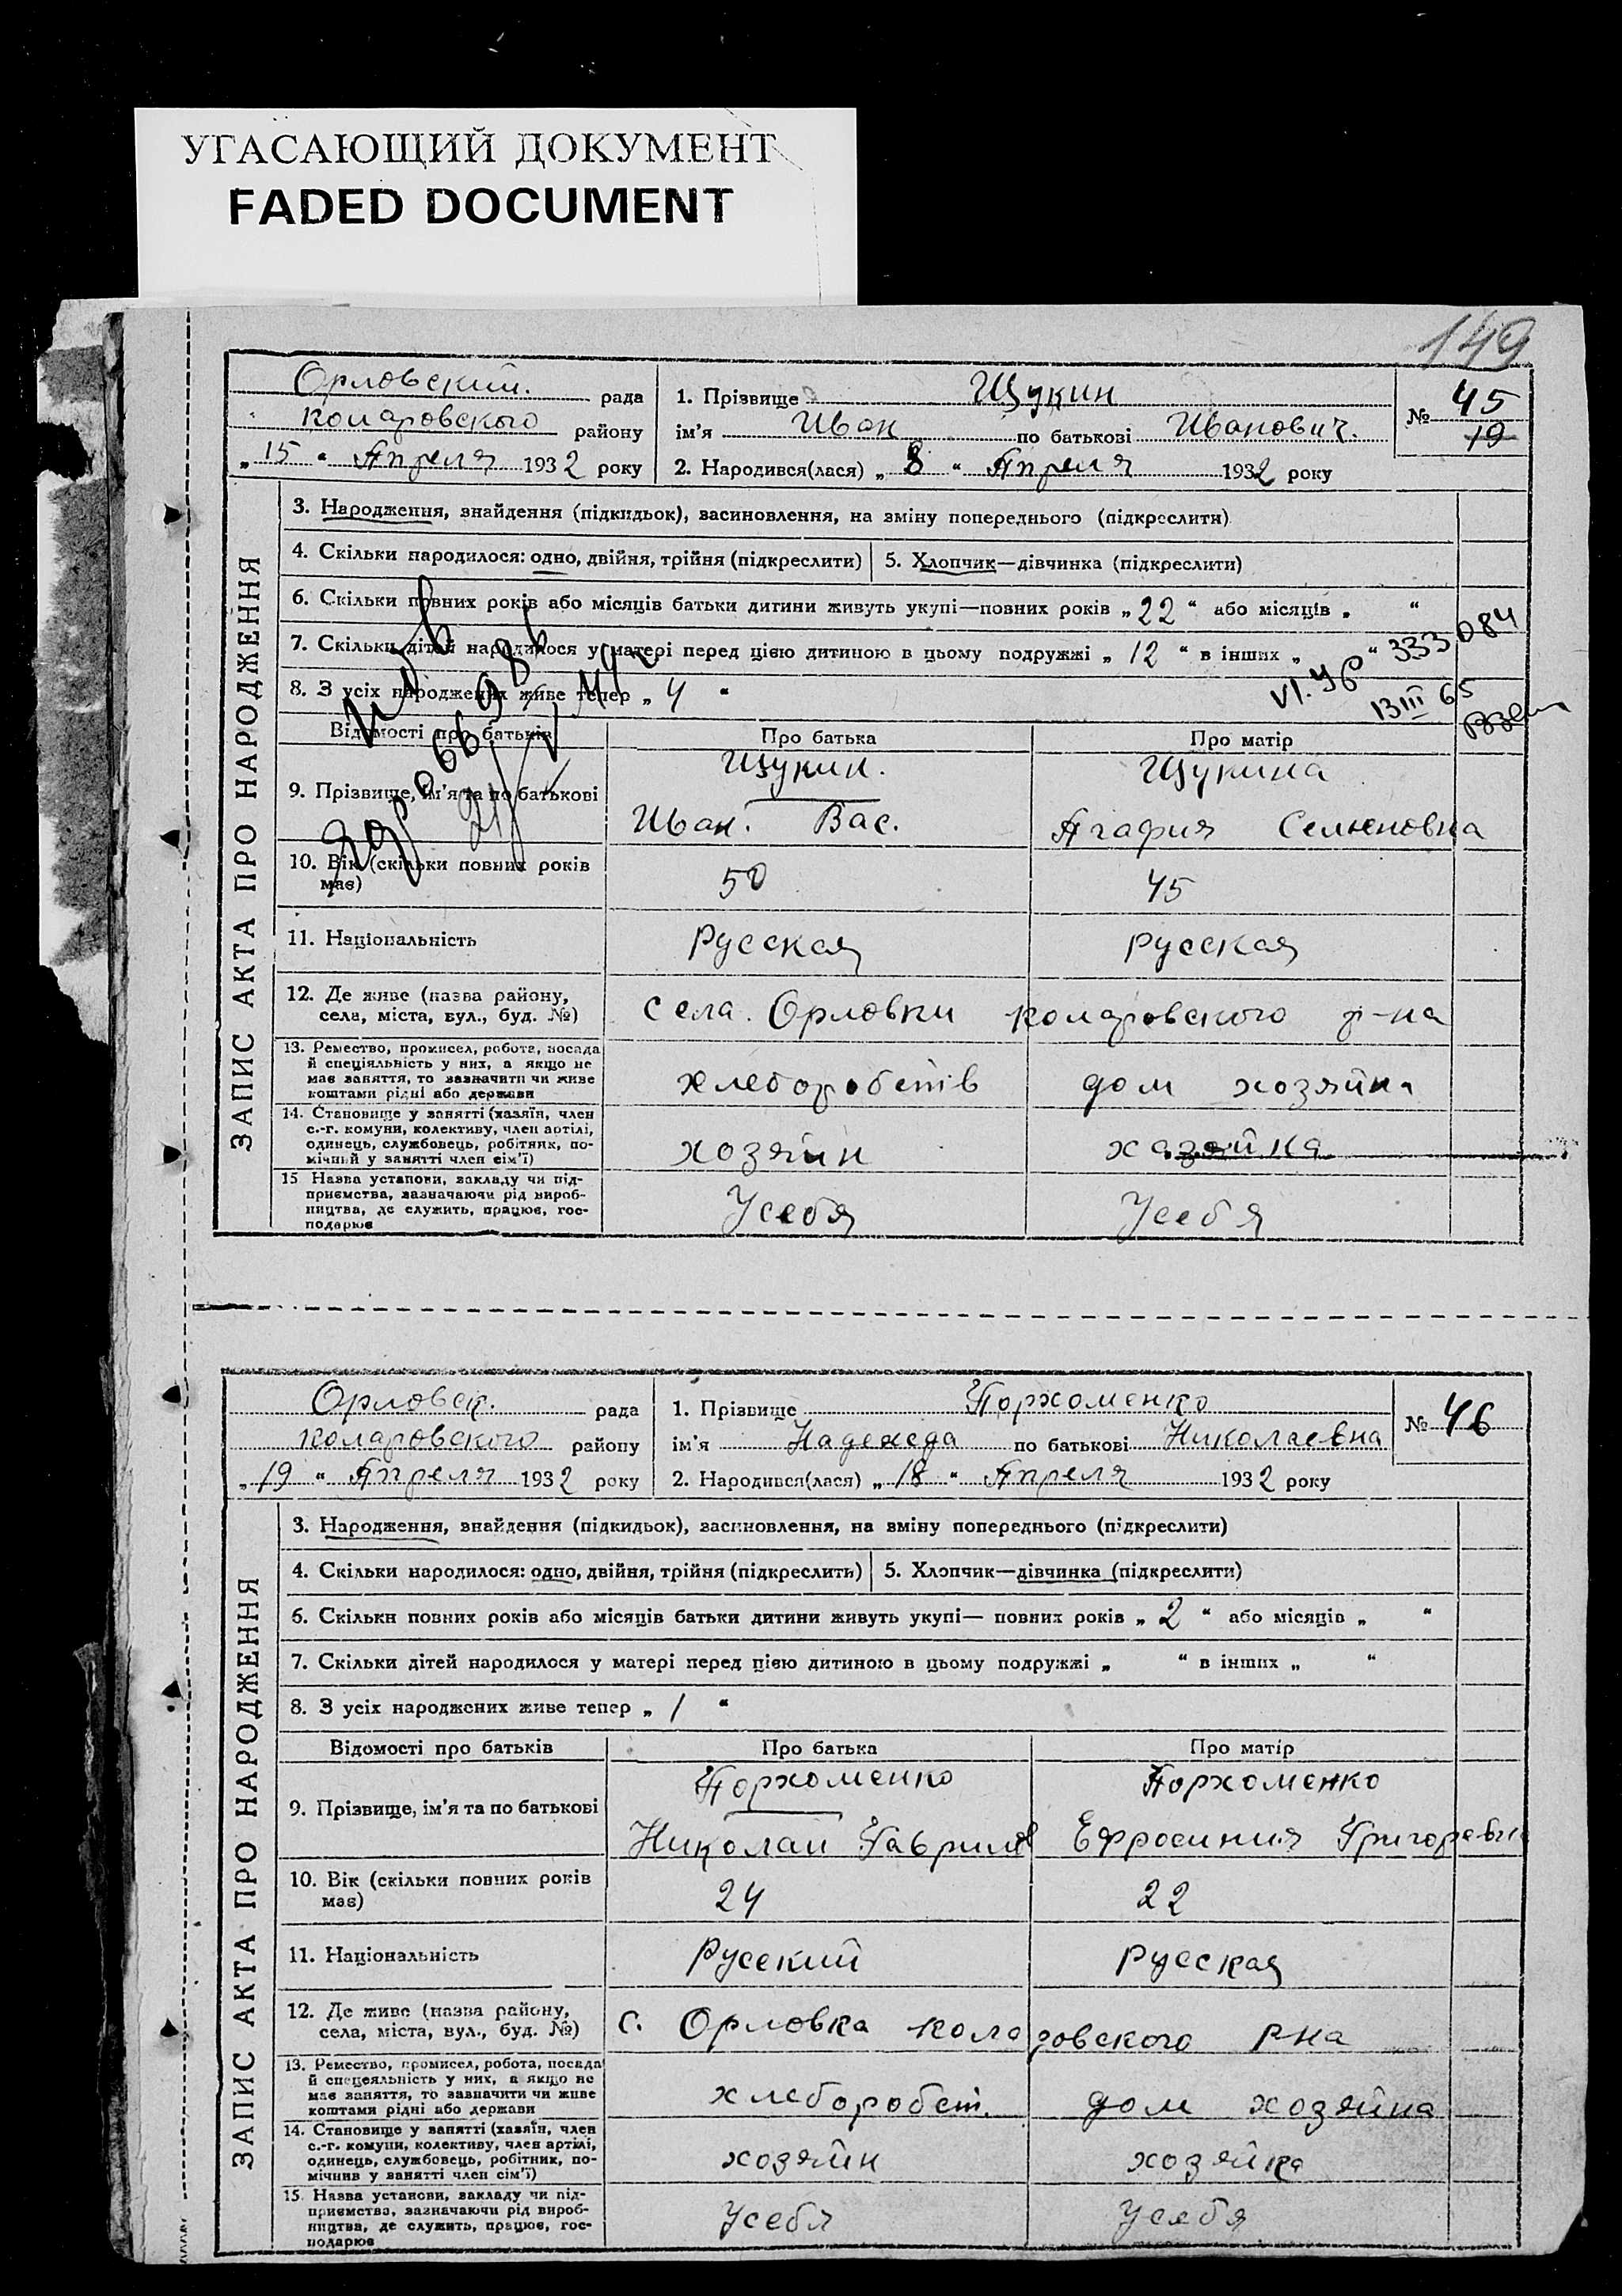 УГАСАЮЩИЙ ДОКУМЕНТ
FADED DOCUMENT
149
Орловский. рада
коларовского району
„15“ Апреля 1932 року
1. Прізвище Щукин
ім'я Иван по батькові Иванович.
2. Народився(лася) „8“ Апреля 1932 року
№ 45
19
ЗАПИС АКТА ПРО НАРОДЖЕННЯ
3. Народження, знайдення (підкидьок), васиновлення, на зміну попереднього (підкреслити)
4. Скільки народилося: одно, двійня, трійня (підкреслити)
5. Хлопчик—дівчинка (підкреслити)
6. Скільки повних років або місяців батьки дитини живуть укупі—повних років „22“ або місяців „ “
7. Скільки дітей народилося у матері перед цією дитиною в цьому подружжі „12“ в інших „ “
333,084
8. З усіх народжених живе тепер „4“
VI. УР
13 III 65
Відомості про батьків
Про батька
Про матір
9. Прізвище, ім'я та по батькові
Щукин.
Иван. Вас.
Щукина
Агафия Семеновна
10. Вік (скільки повних років
має)
50
45
11. Національність
Русская
русская
12. Де живе (назва району,
села, міста, вул., буд. №)
села. Орловки коларовского р-на
13. Ремество, промисел, робота, посада
й спеціяльність у них, а якщо не
має заняття, то зазначити чи живе
коштами рідні або держави
хлеборобств
дом хозяйка
14. Становище у занятті (хазяїн, член
с.-г. комуни, колективу, член артілі,
одинець, службовець, робітник, по-
мічний у занятті член сім'ї)
хозяин
хазяйка
15 Назва установи, закладу чи під-
приємства, зазначаючи рід вироб-
ництва, де служить, працює, гос-
подарює
Усебя
Усебя
Орловск. рада
коларовского району
„19“ Апреля 1932 року
1. Прізвище Порхоменко
ім'я Надежда по батькові Николаевна
2. Народився(лася) „18“ Апреля 1932 року
№ 46
ЗАПИС АКТА ПРО НАРОДЖЕННЯ
3. Народження, знайдення (підкидьок), васиновлення, на зміну попереднього (підкреслити)
4. Скільки народилося: одно, двійня, трійня (підкреслить)
5. Хлопчик—дівчинка (підкреслити)
6. Скільки повних років або місяців батьки дитини живуть укупі— повних років „2“ або місяців „ “
7. Скільки дітей народилося у матері перед цією дитиною в цьому подружжі „ “ в інших „ “
8. З усіх народжених живе тепер „1“
Відомості про батьків
Про батька
Про матір
9. Прізвище, ім'я та по батькові
Порхоменко
Николай Гаврилов
Порхоменко
Ефросиния Григоревн
10. Вік (скільки повних років
має)
24
22
11. Національність
Русский
русская
12. Де живе (назва району,
села, міста, вул., буд. №)
с. Орловка коларовского Р-на
13. Ремество, промисел, робота, посада
й спецеяльність у них, а якщо не
має заняття, то зазначити чи живе
коштами рідні або держави
хлеборобст.
дом хозяйка
14. Становище у занятті (хазяїн, член
с.-г. комуни, колективу, член артілі,
одинець, службовець, робітник, по-
мічнив у занятті член сім'ї)
хозяин
хозяйка
15 Назва установи, закладу чи під-
приємства, зазначаючи рід вироб-
ництва, де служить, працює, гос-
подарює
Усебя
Усебя